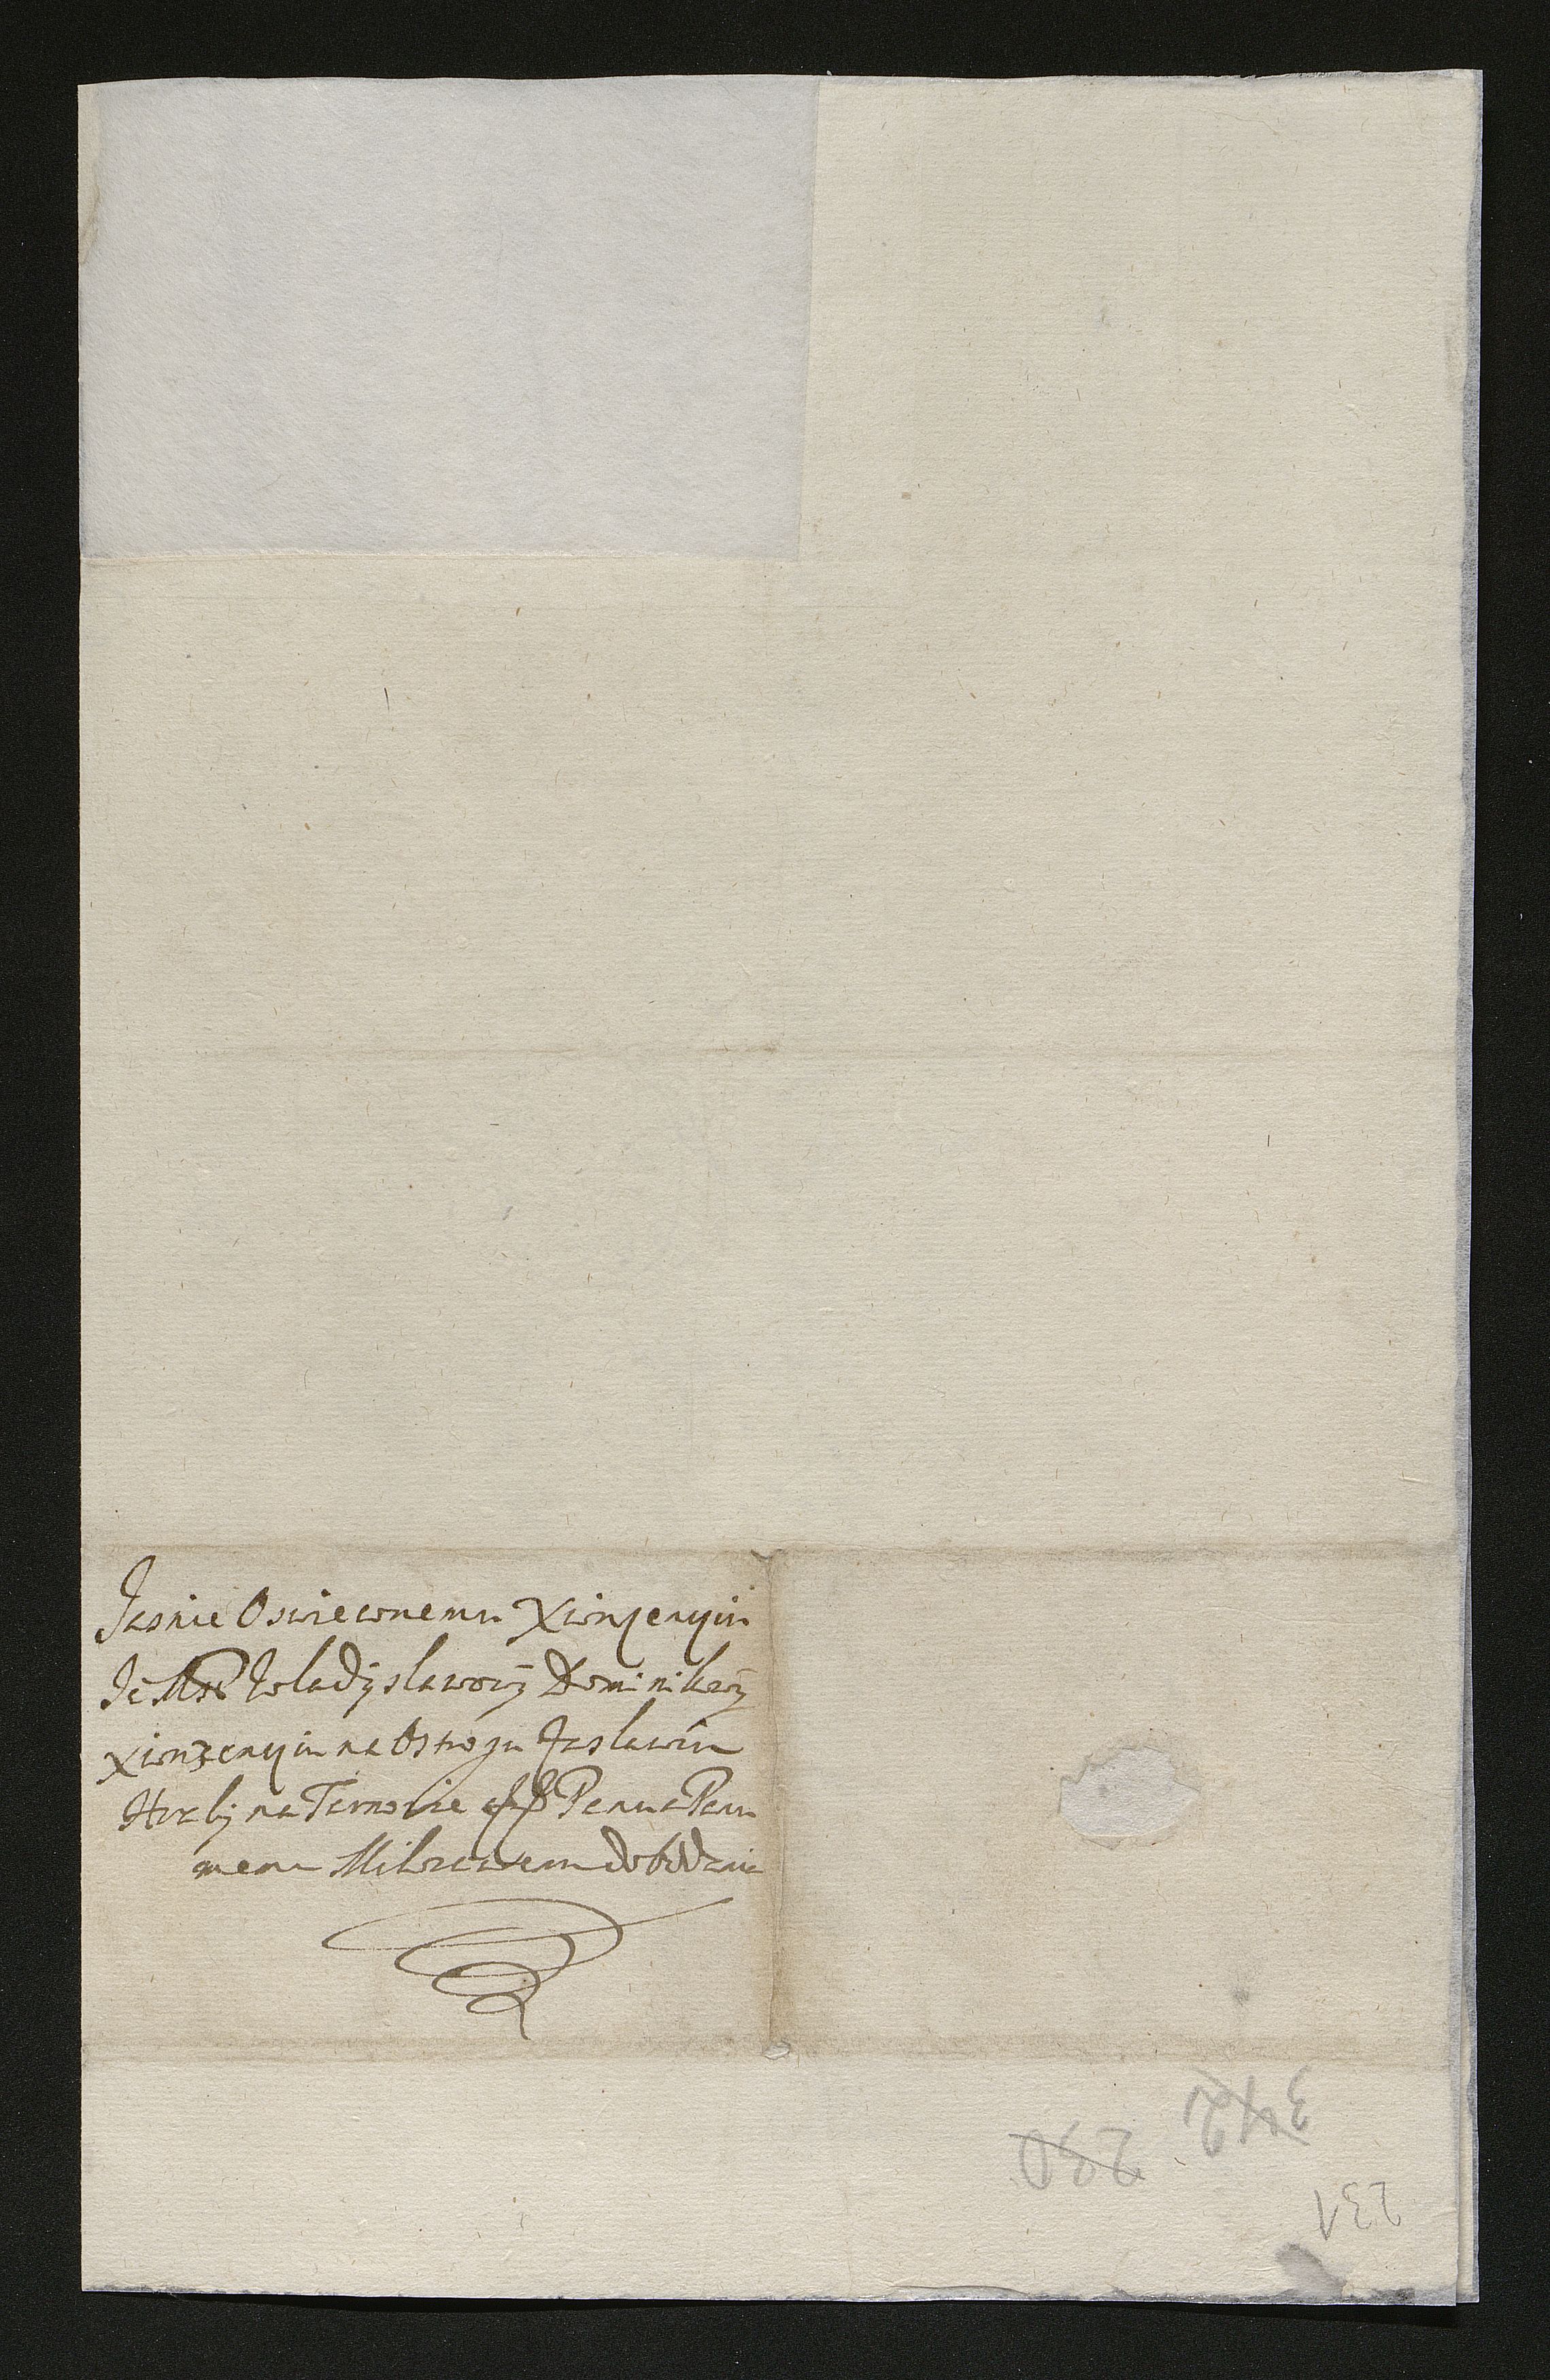 Jasnie Oswieconemu Xionzenciu
Je Mśći Wladÿslawowÿ Dominikowÿ
Xionzenciu na Ostrogu Zaslawiu
Hrabÿ na Tarnowie Panu a Panu
memu Miłosciwemu dobrodzie
342
230
231